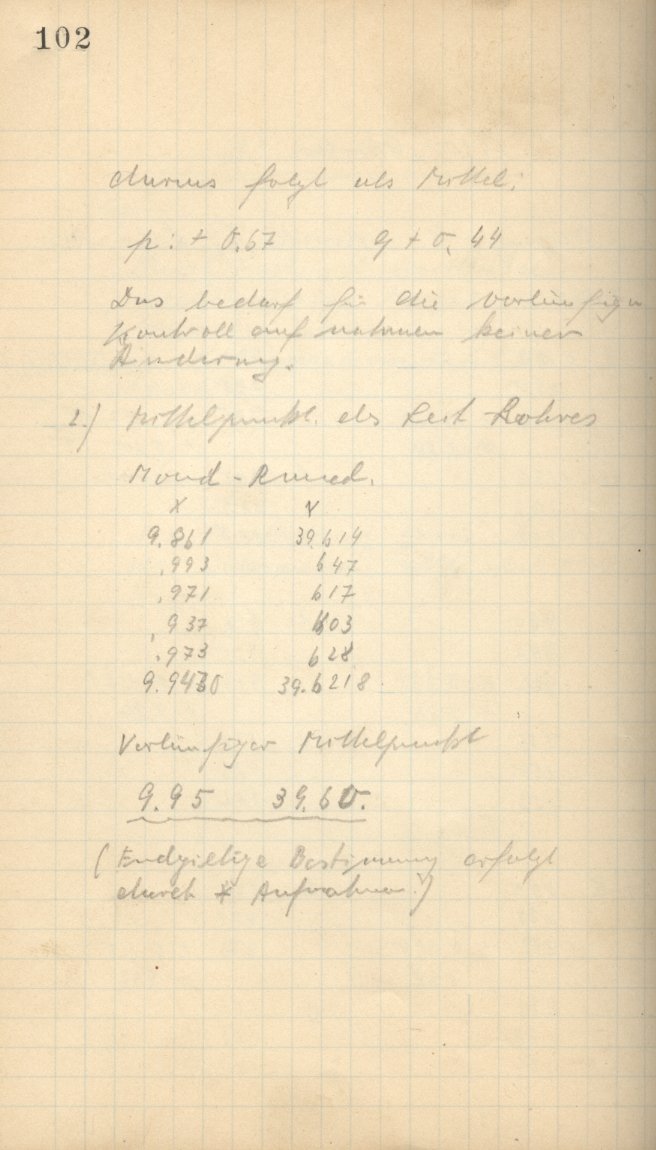 102
daraus folgt als Mittel:
p: + 0.67 q + 0.44
Das bedarf für die vorläufigen
Kontrollaufnahmen keiner
Änderung.
2.) Mittelpunkt des Leit-Rohres
Mond-Rand.
X Y
9.861 39.614
.993 647
.971 617
.937 603
.973 628
9.9470 39.6218
Vorläufiger Mittelpunkt
9.95 39.60.
(Endgiltige Bestimmung erfolgt
durch * Aufnahmen.)